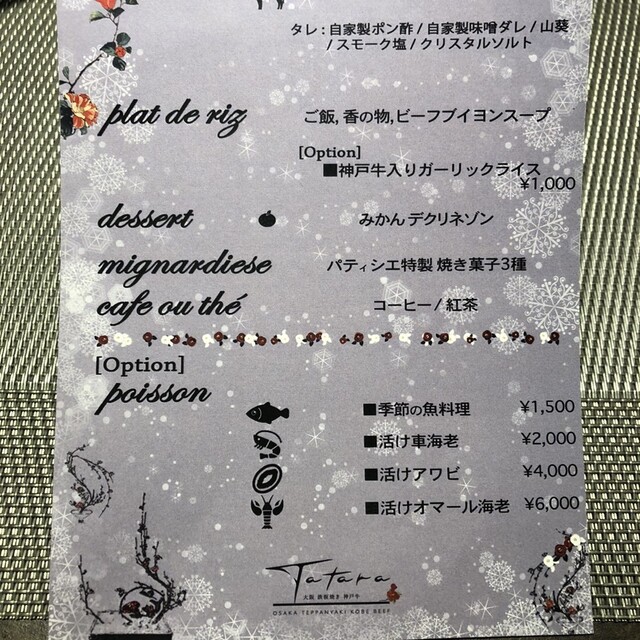 タレ : 自家製ポン酢 / 自家製味噌ダレ / 山葵
/ スモーク塩 / クリスタルソルト
plat de riz ご飯, 香の物,ビーフブイヨンスープ
[Option]
■神戸牛入りガーリックライス
¥1,000
dessert みかん デクリネゾン
mignardiese パティシエ特製 焼き菓子3種
cafe ou thé コーヒー / 紅茶
[Option]
poisson
■季節の魚料理 ¥1,500
■活け車海老 ¥2,000
■活けアワビ ¥4,000
■活けオマール海老 ¥6,000
Tatara
大阪 鉄板焼き 神戸牛
OSAKA TEPPANYAKI KOBE BEEF